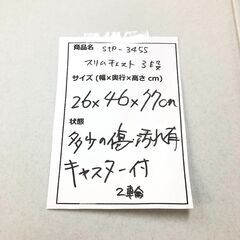 商品名 STP-3455
スリムチェスト 3段
サイズ（幅×奥行×高さ cm）
26×46×77cm
状態
多少の傷汚れ有
キャスター付
2輪